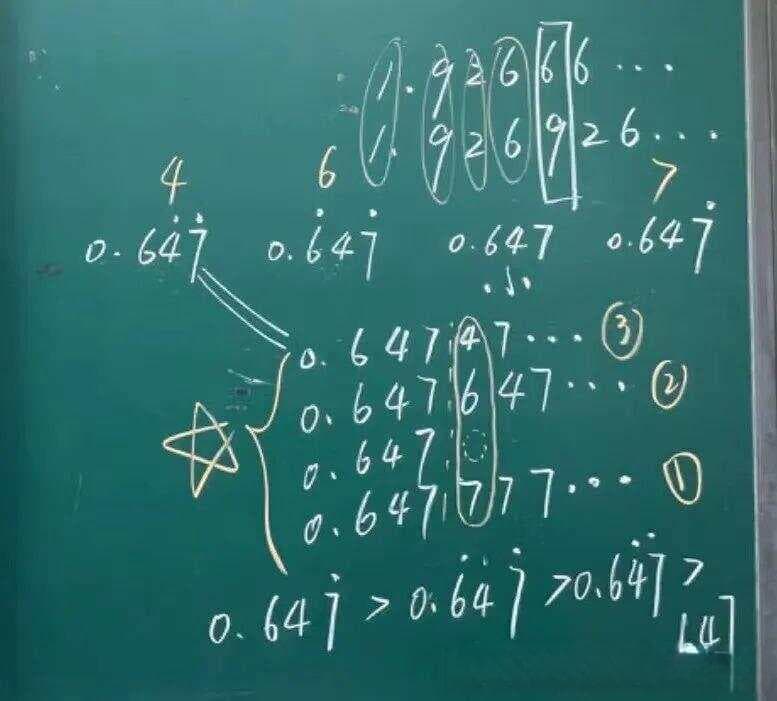 1.92666...
1.926926...
4 6 7
0.64̇7̇ 0.6̇47̇ 0.647 0.647̇
小
0.64747... ③
0.647647... ②
0.647
0.647777... ①
0.647̇ > 0.6̇4̇7̇ > 0.64̇7̇ >
647